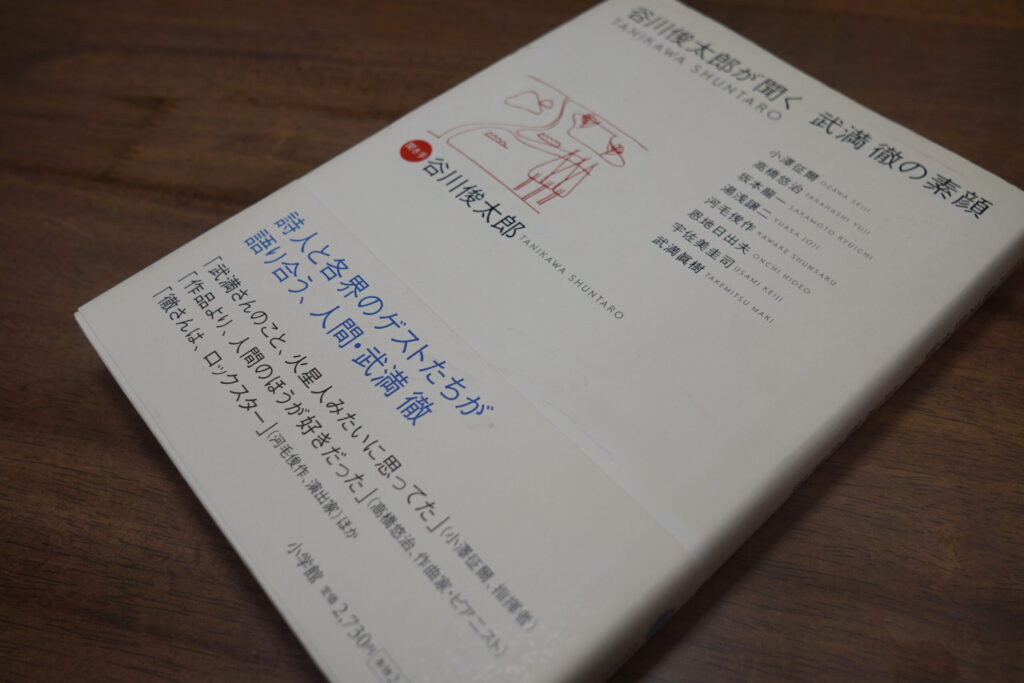 谷川俊太郎が聞く 武満徹の素顔
TANIKAWA SHUNTARO
小澤征爾 OZAWA SEIJI
高橋悠治 TAKAHASHI YUJI
坂本龍一 SAKAMOTO RYUICHI
湯浅譲二 YUASA JOJI
河毛俊作 KAWAKE SHUNSAKU
恩地日出夫 ONCHI HIDEO
宇佐美圭司 USAMI KEIJI
武満眞樹 TAKEMITSU MAKI
聞き手 谷川俊太郎 TANIKAWA SHUNTARO
詩人と各界のゲストたちが
語り合う、人間・武満徹
「武満さんのこと、火星人みたいに思ってた」(小澤征爾、指揮者)
「作品より、人間のほうが好きだった」(高橋悠治、作曲家・ピアニスト)
「徹さんは、ロックスター」(河毛俊作、演出家)ほか
小学館 定価2,730円